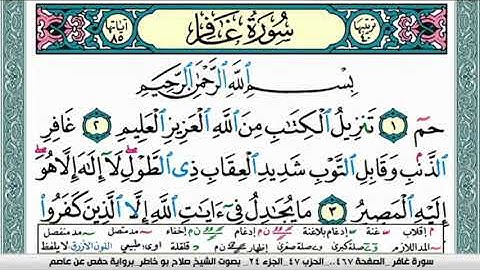 ترتيبها ٤٠
سُورَةُ غَافِرٍ
آياتها ٨٥
بِسْمِ ٱللَّهِ ٱلرَّحْمَٰنِ ٱلرَّحِيمِ
حمٓ ١ تَنزِيلُ ٱلْكِتَٰبِ مِنَ ٱللَّهِ ٱلْعَزِيزِ ٱلْعَلِيمِ ٢ غَافِرِ
ٱلذَّنۢبِ وَقَابِلِ ٱلتَّوْبِ شَدِيدِ ٱلْعِقَابِ ذِى ٱلطَّوْلِ ۖ لَآ إِلَٰهَ إِلَّا هُوَ ۖ
إِلَيْهِ ٱلْمَصِيرُ ٣ مَا يُجَٰدِلُ فِىٓ ءَايَٰتِ ٱللَّهِ إِلَّا ٱلَّذِينَ كَفَرُوا۟
م اقلاب غنة ن م إدغام ن م إخفاء مد متصل مد منفصل
مد لازم صلة كبرى صلة صغرى إظهار ن م قلقلة طبيعي اللون الأزرق لا يلفظ
سورة غافر _الصفحة ٤٦٧_ الحزب ٤٧_الجزء ٢٤_ بصوت الشيخ صلاح بو خاطر_برواية حفص عن عاصم